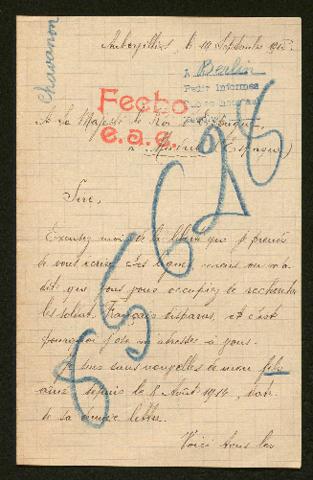 Chavanon
Aubervilliers, le 19 Septembre 1915
A Berlin
Pedir informes
Fecho
A Sa Majesté le Roi
e.a.c.
à Madrid (Espagne)
856926
Sire,
Excusez moi de la liberté que je prends
de vous écrire ces lignes, mais on m'a
dit que vous vous occupiez de rechercher
les soldats Français disparus, et c'est
pourquoi j'ose m'adresser à vous.
Je suis sans nouvelles de mon fils
ainé depuis le 8 Août 1914, date
de sa dernière lettre.
Voici tous les